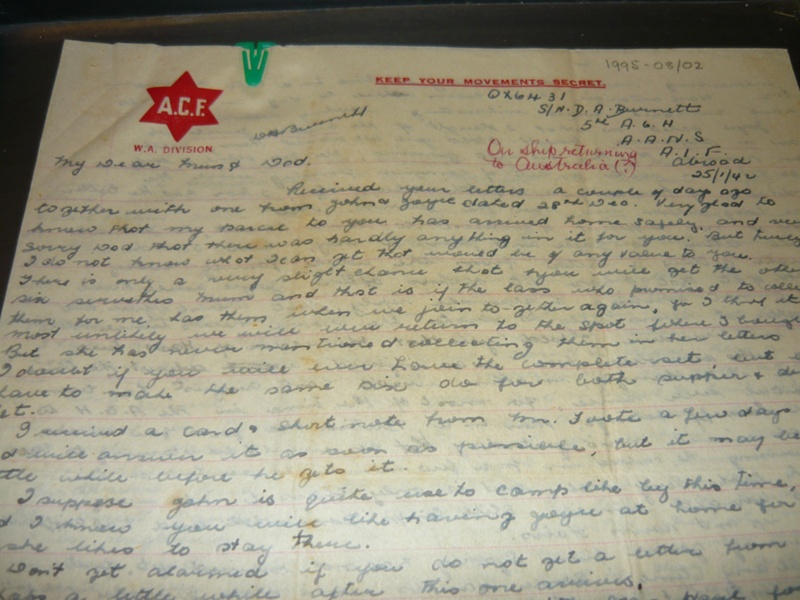 1995-08/02
KEEP YOUR MOVEMENTS SECRET.
A.C.F.
W.A. DIVISION.
QX6431
S/N. D. A. Burnett
5th A. G. H
A. A. N. S
A. I. F.
Abroad
25/1/42
On ship returning
to Australia (?)
My Dear Mum & Dad.
Received your letters a couple of days ago
together with one from John & Joyce dated 28th Dec. Very glad to
know that my parcel to you has arrived home safely, and very
sorry Dad that there was hardly anything in it for you. But
I do not know what I can get that would be of any value to you.
There is only a very slight chance that you will get the other
six serviettes Mum and that is if the lass who promised to collect
them for me, has them when we join together again, for I think it
most unlikely we will ever return to the spot where I bought
But she has never mentioned collecting them in her letters
I doubt if you will ever have the complete set, but
have to make the same six do for both supper &
set.
I received a card & short note from Mr. a few days
will answer it as soon as possible, but it may be
little while before he gets it.
I suppose John is quite use to camp life by this time,
I know you will like having Joyce at home for
she likes to stay there.
Won't get alarmed if you do not get a letter from
a little while after this one arrives.